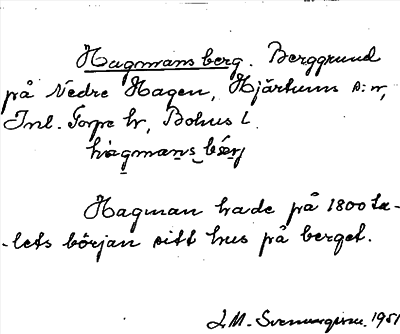 Hagmansberg. Berggrund
på Nedre Hagen, Hjärtums s:n,
Inl. Torpe hr, Bohus l.
hagmans bærj
Hagman hade på 1800 ta-
-lets början sitt hus på berget.
1951